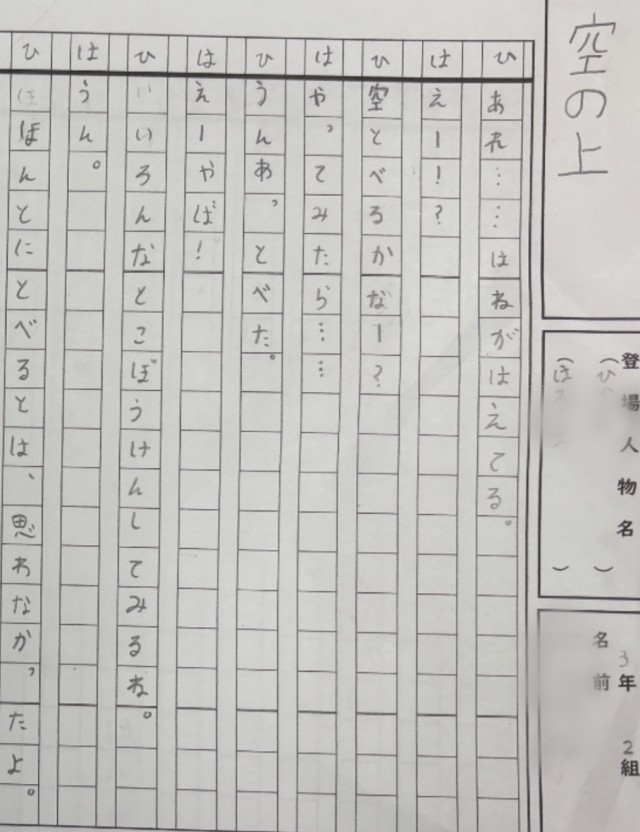 空の上
登場人物名
(ひ )
(は )
3年2組
名前
ひ あれ……はねがはえてる。
は えー!?
ひ 空とべるかなー?
は やってみたら……
ひ うんあっ、とべた。
は えーやば!
ひ いいろんなとこぼうけんしてみるね。
は うん。
ひ ほほんとにとべるとは、思わなかったよ。